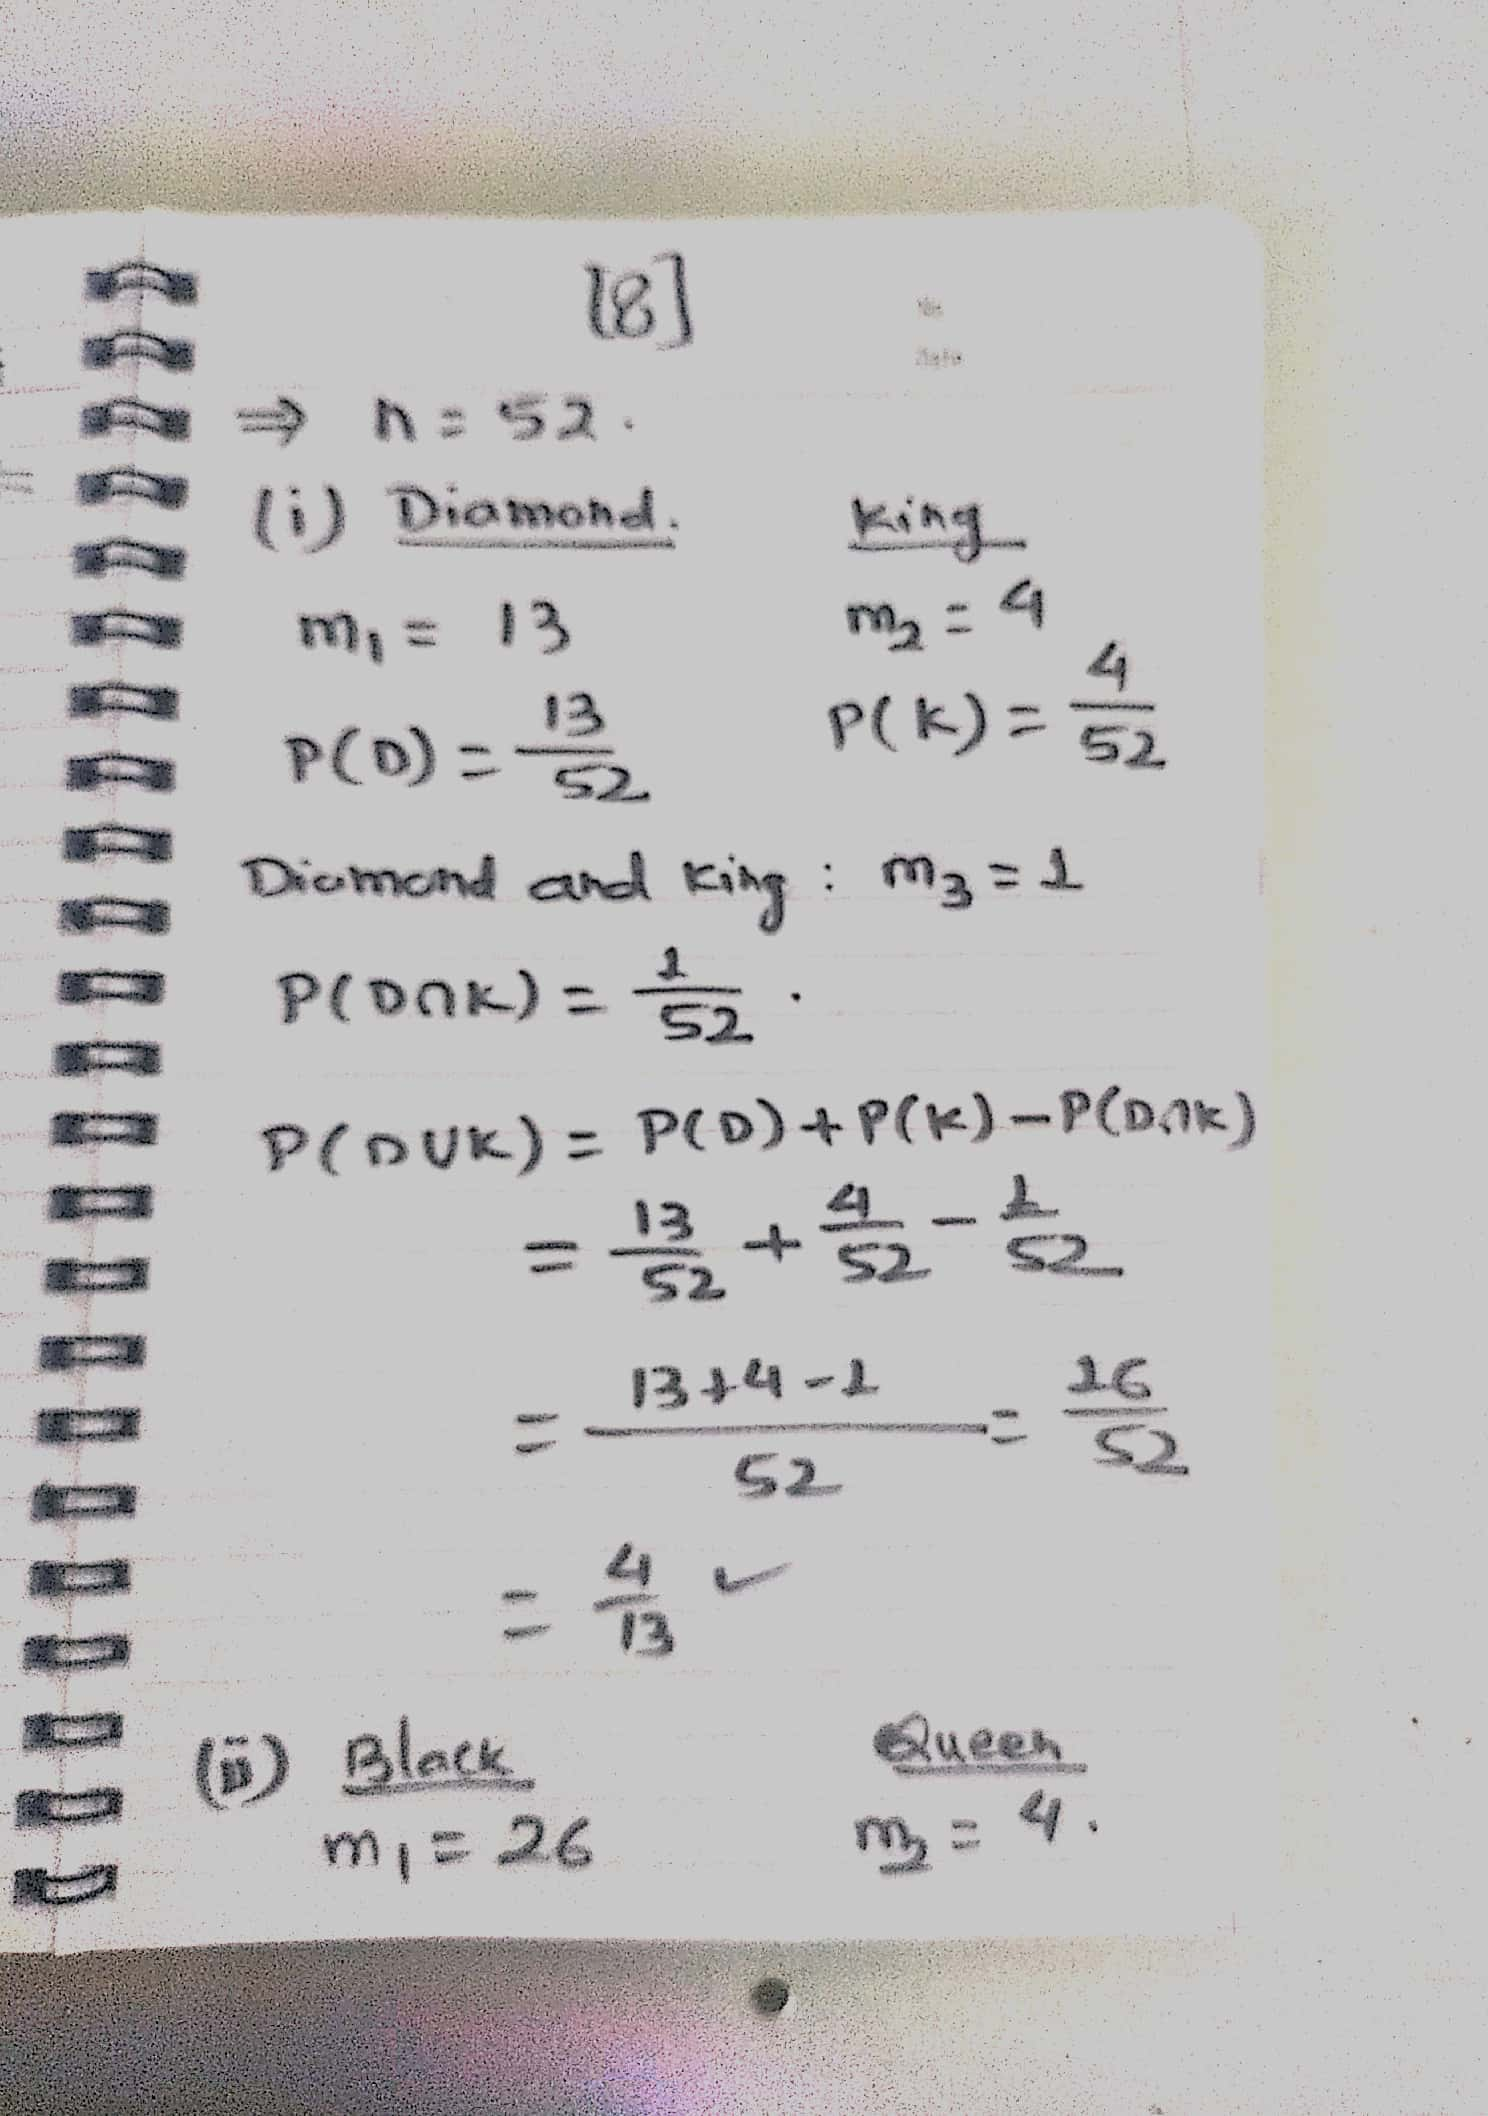 [8]
No
Date
⇒ n = 52.
(i) Diamond. King
m₁ = 13 m₂ = 4
P(D) = 13/52 P(K) = 4/52
Diamond and King : m₃ = 1
P(D∩K) = 1/52.
P(D∪K) = P(D) + P(K) - P(D∩K)
= 13/52 + 4/52 - 1/52
= (13+4-1)/52 = 16/52
= 4/13 ✓
(ii) Black Queen
m₁ = 26 m₂ = 4.